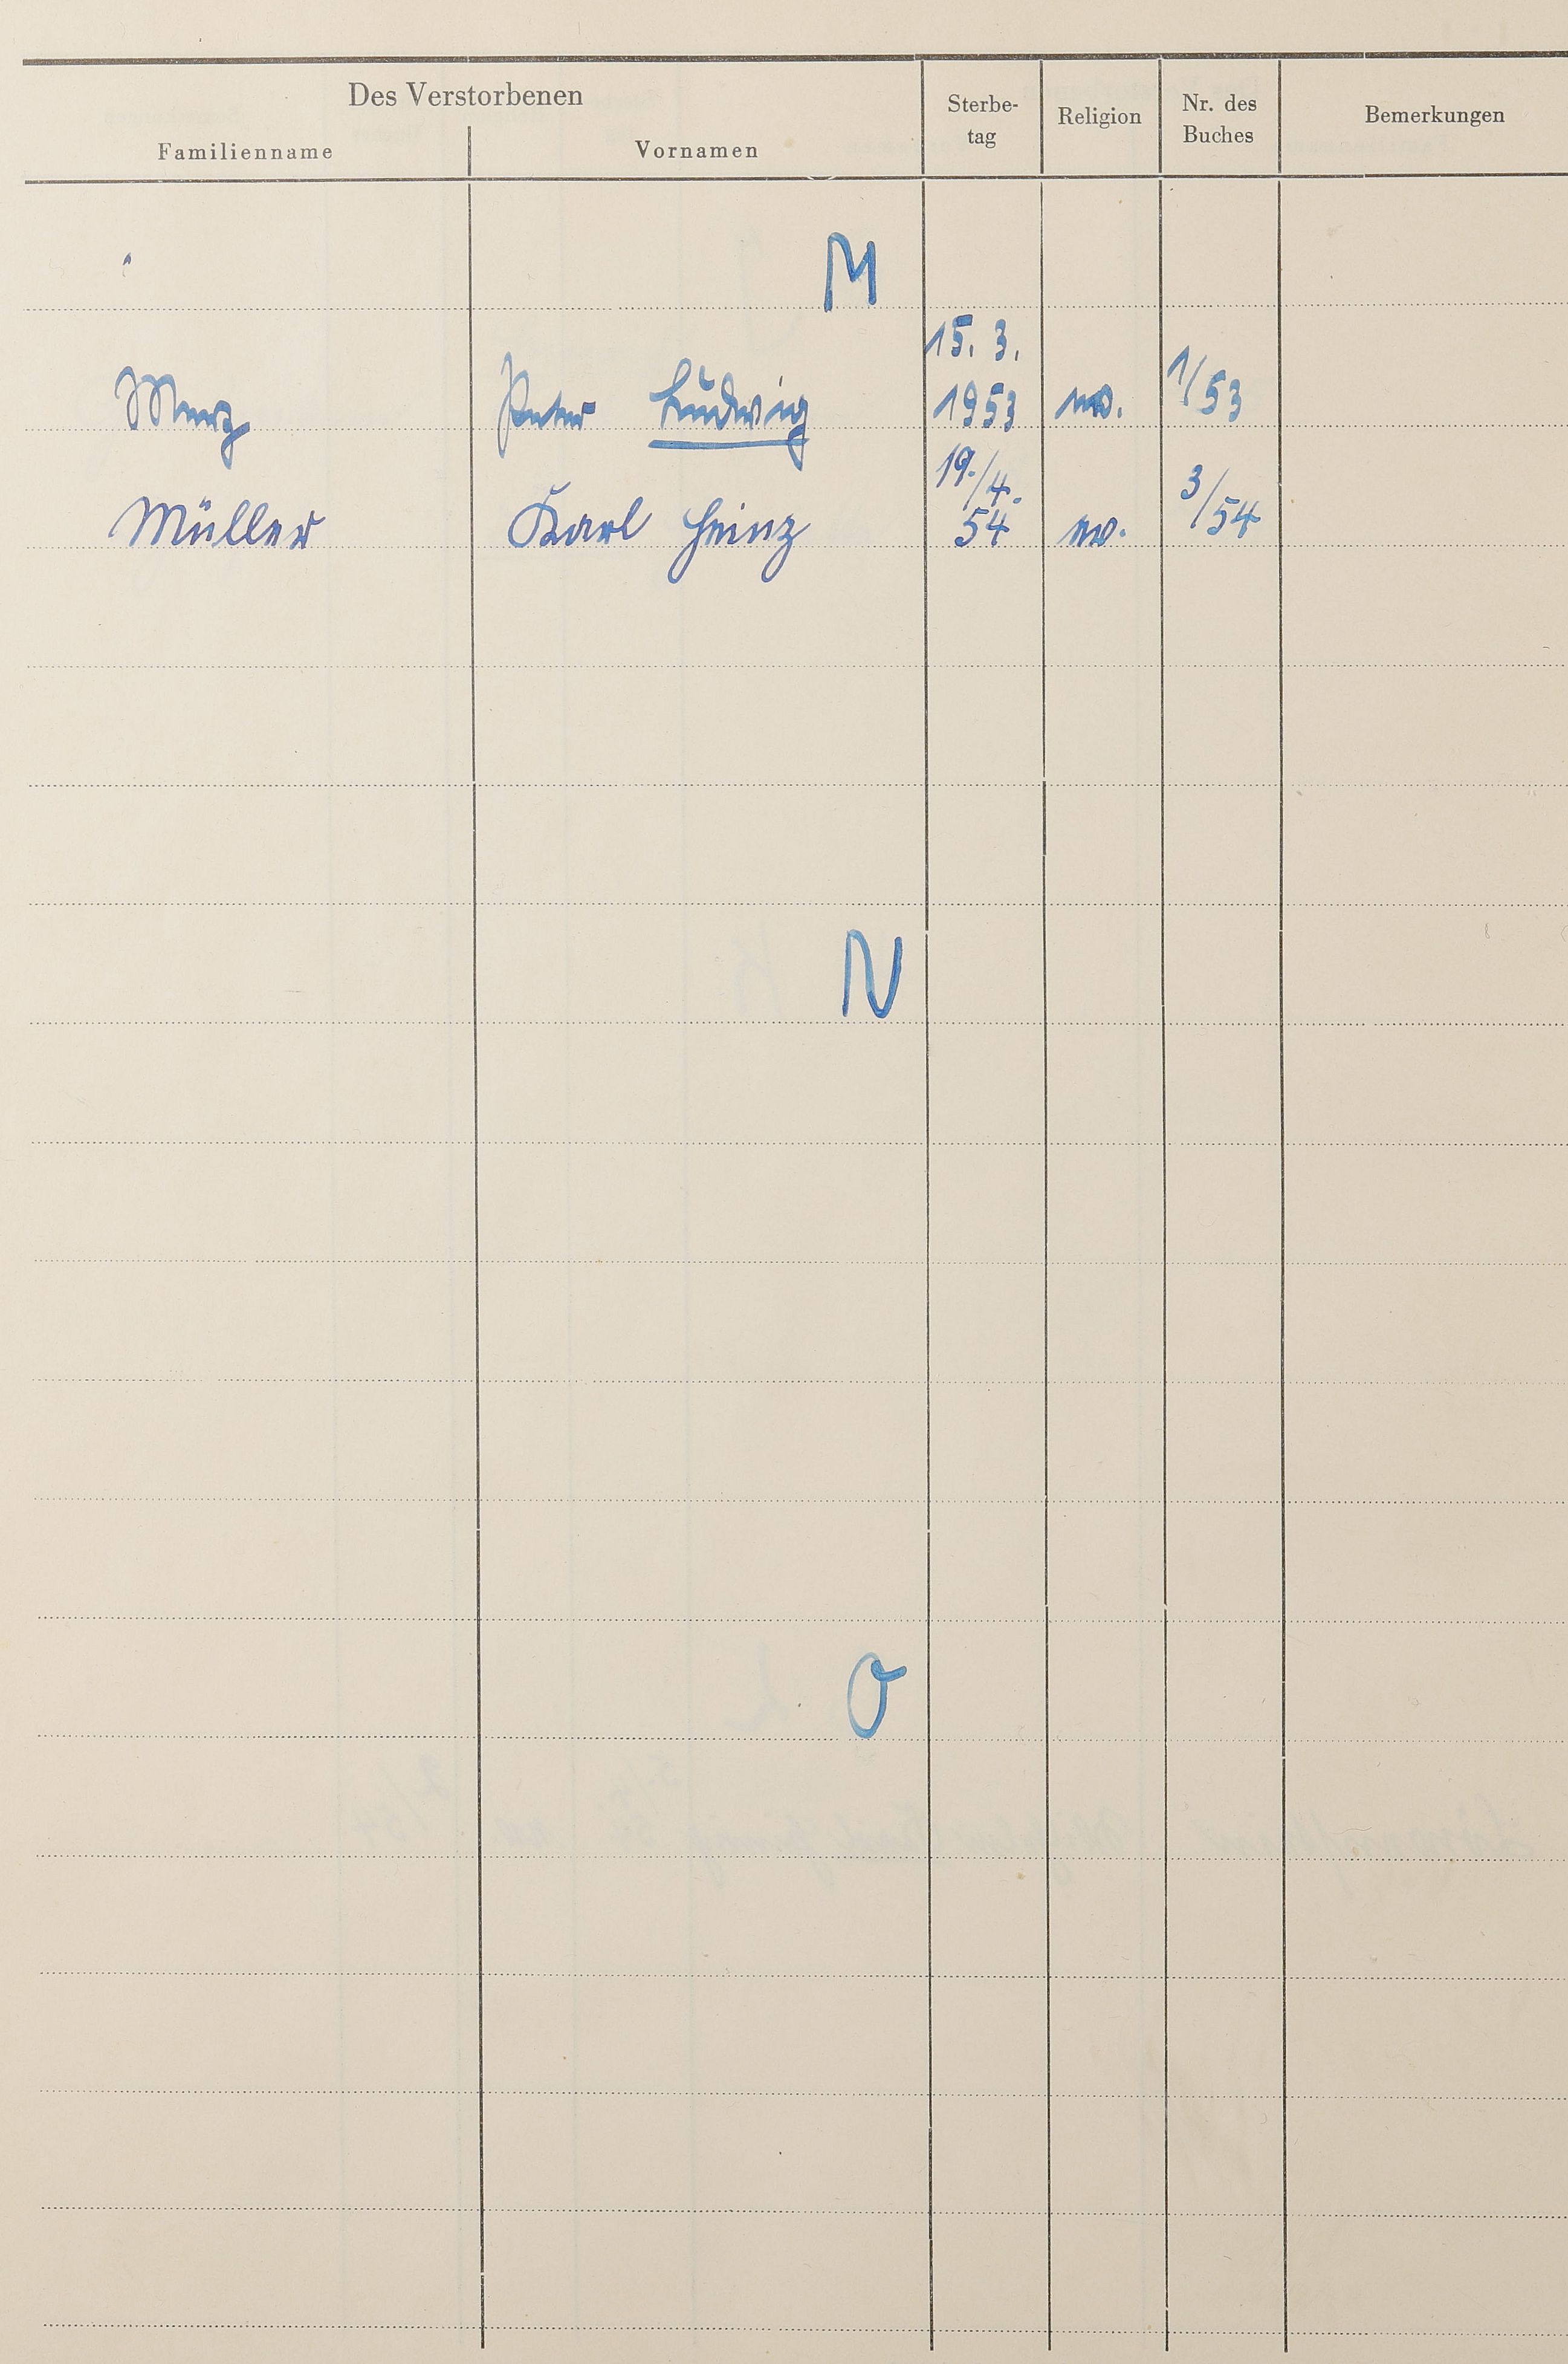 Des Verstorbenen
Familienname Vornamen Sterbe-tag Religion Nr. des Buches Bemerkungen
M
15. 3.
Merz Peter Ludwig 1953 ev. 1/53
19./4.
Müller Karl Heinz 54 ev. 3/54
N
O